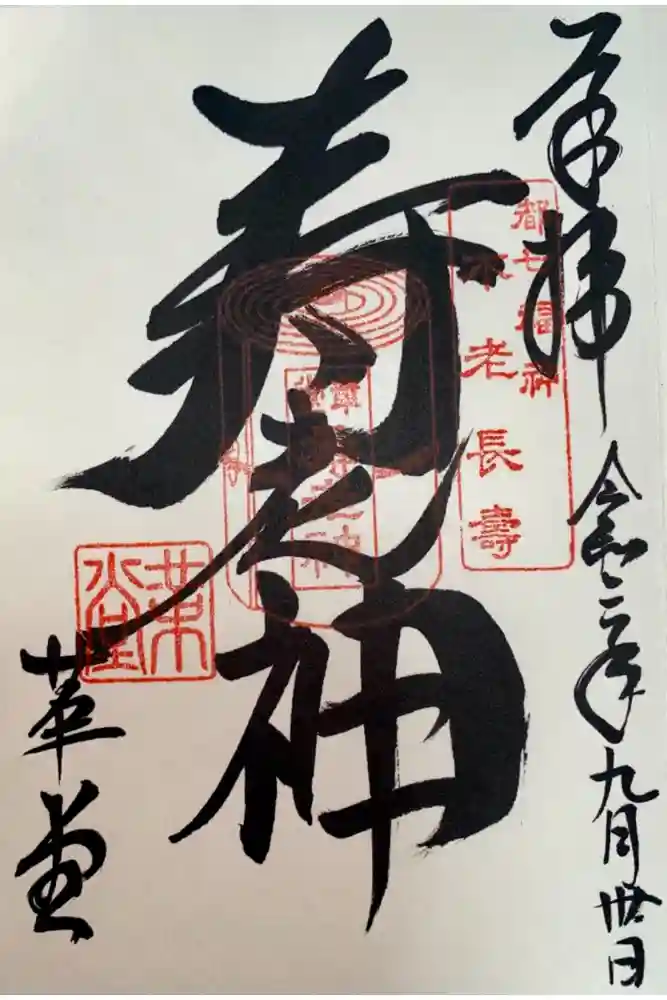 奉拝
令和二年九月丗日
都七福神
不老長壽
寿老神
革堂
革堂